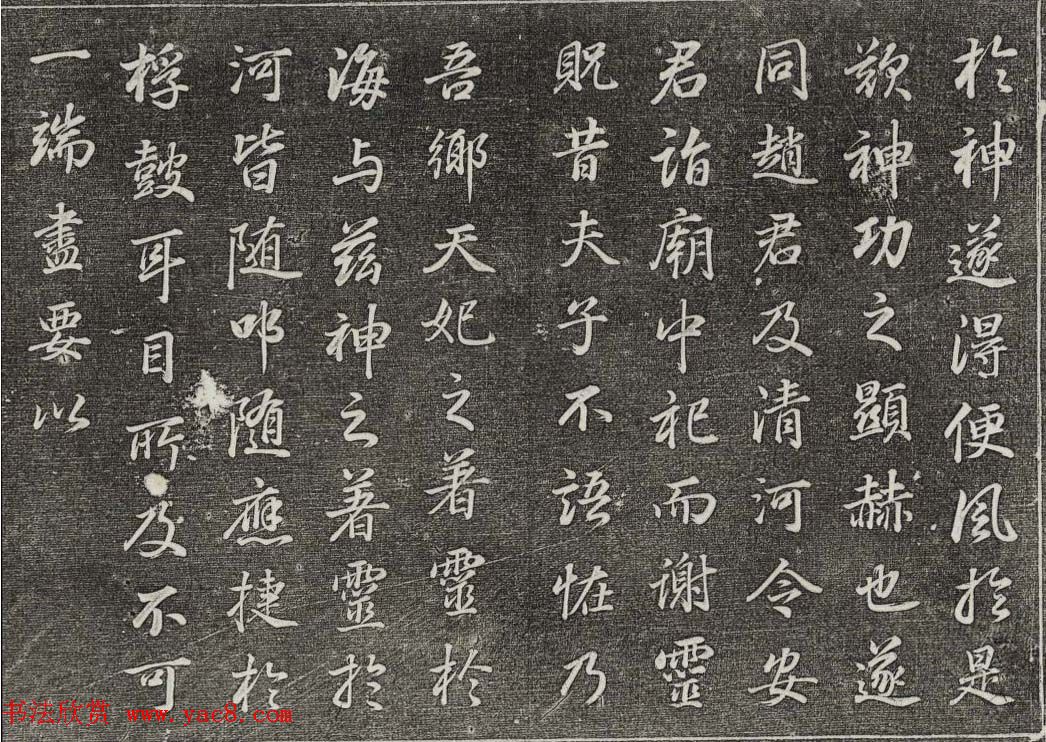 於神遂得便風於是
歎神功之顯赫也遂
同趙君及清河令安
君詣廟中祀而謝靈
貺昔夫子不語恠乃
吾鄉天妃之著靈於
海与茲神之著靈於
河皆随叩随應捷於
桴鼓耳目所及不可
一端盡要以
书法欣赏 www.yac8.com